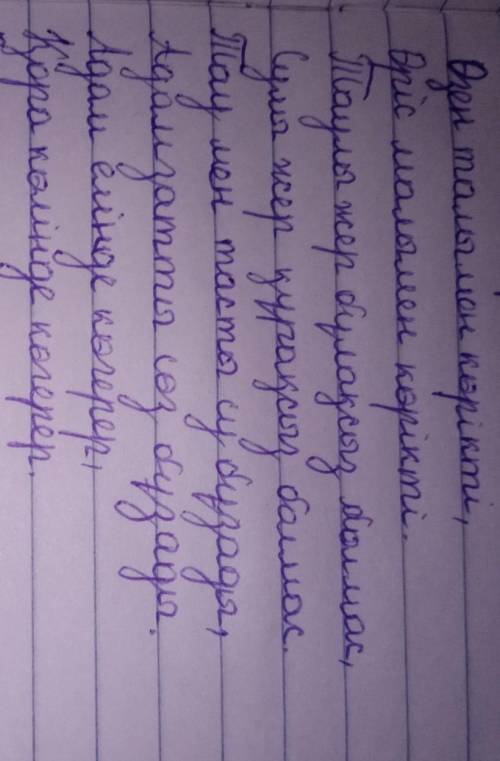 Өзен талымен көрікті,
Өріс малымен көрікті.
Таулы жер бұлақсыз болмас,
Сулы жер құрақсыз болмас.
Тау мен тасты су бұзады,
Адамзатты сөз бұзады.
Адам елінде көгерер,
көлінде көгерер.